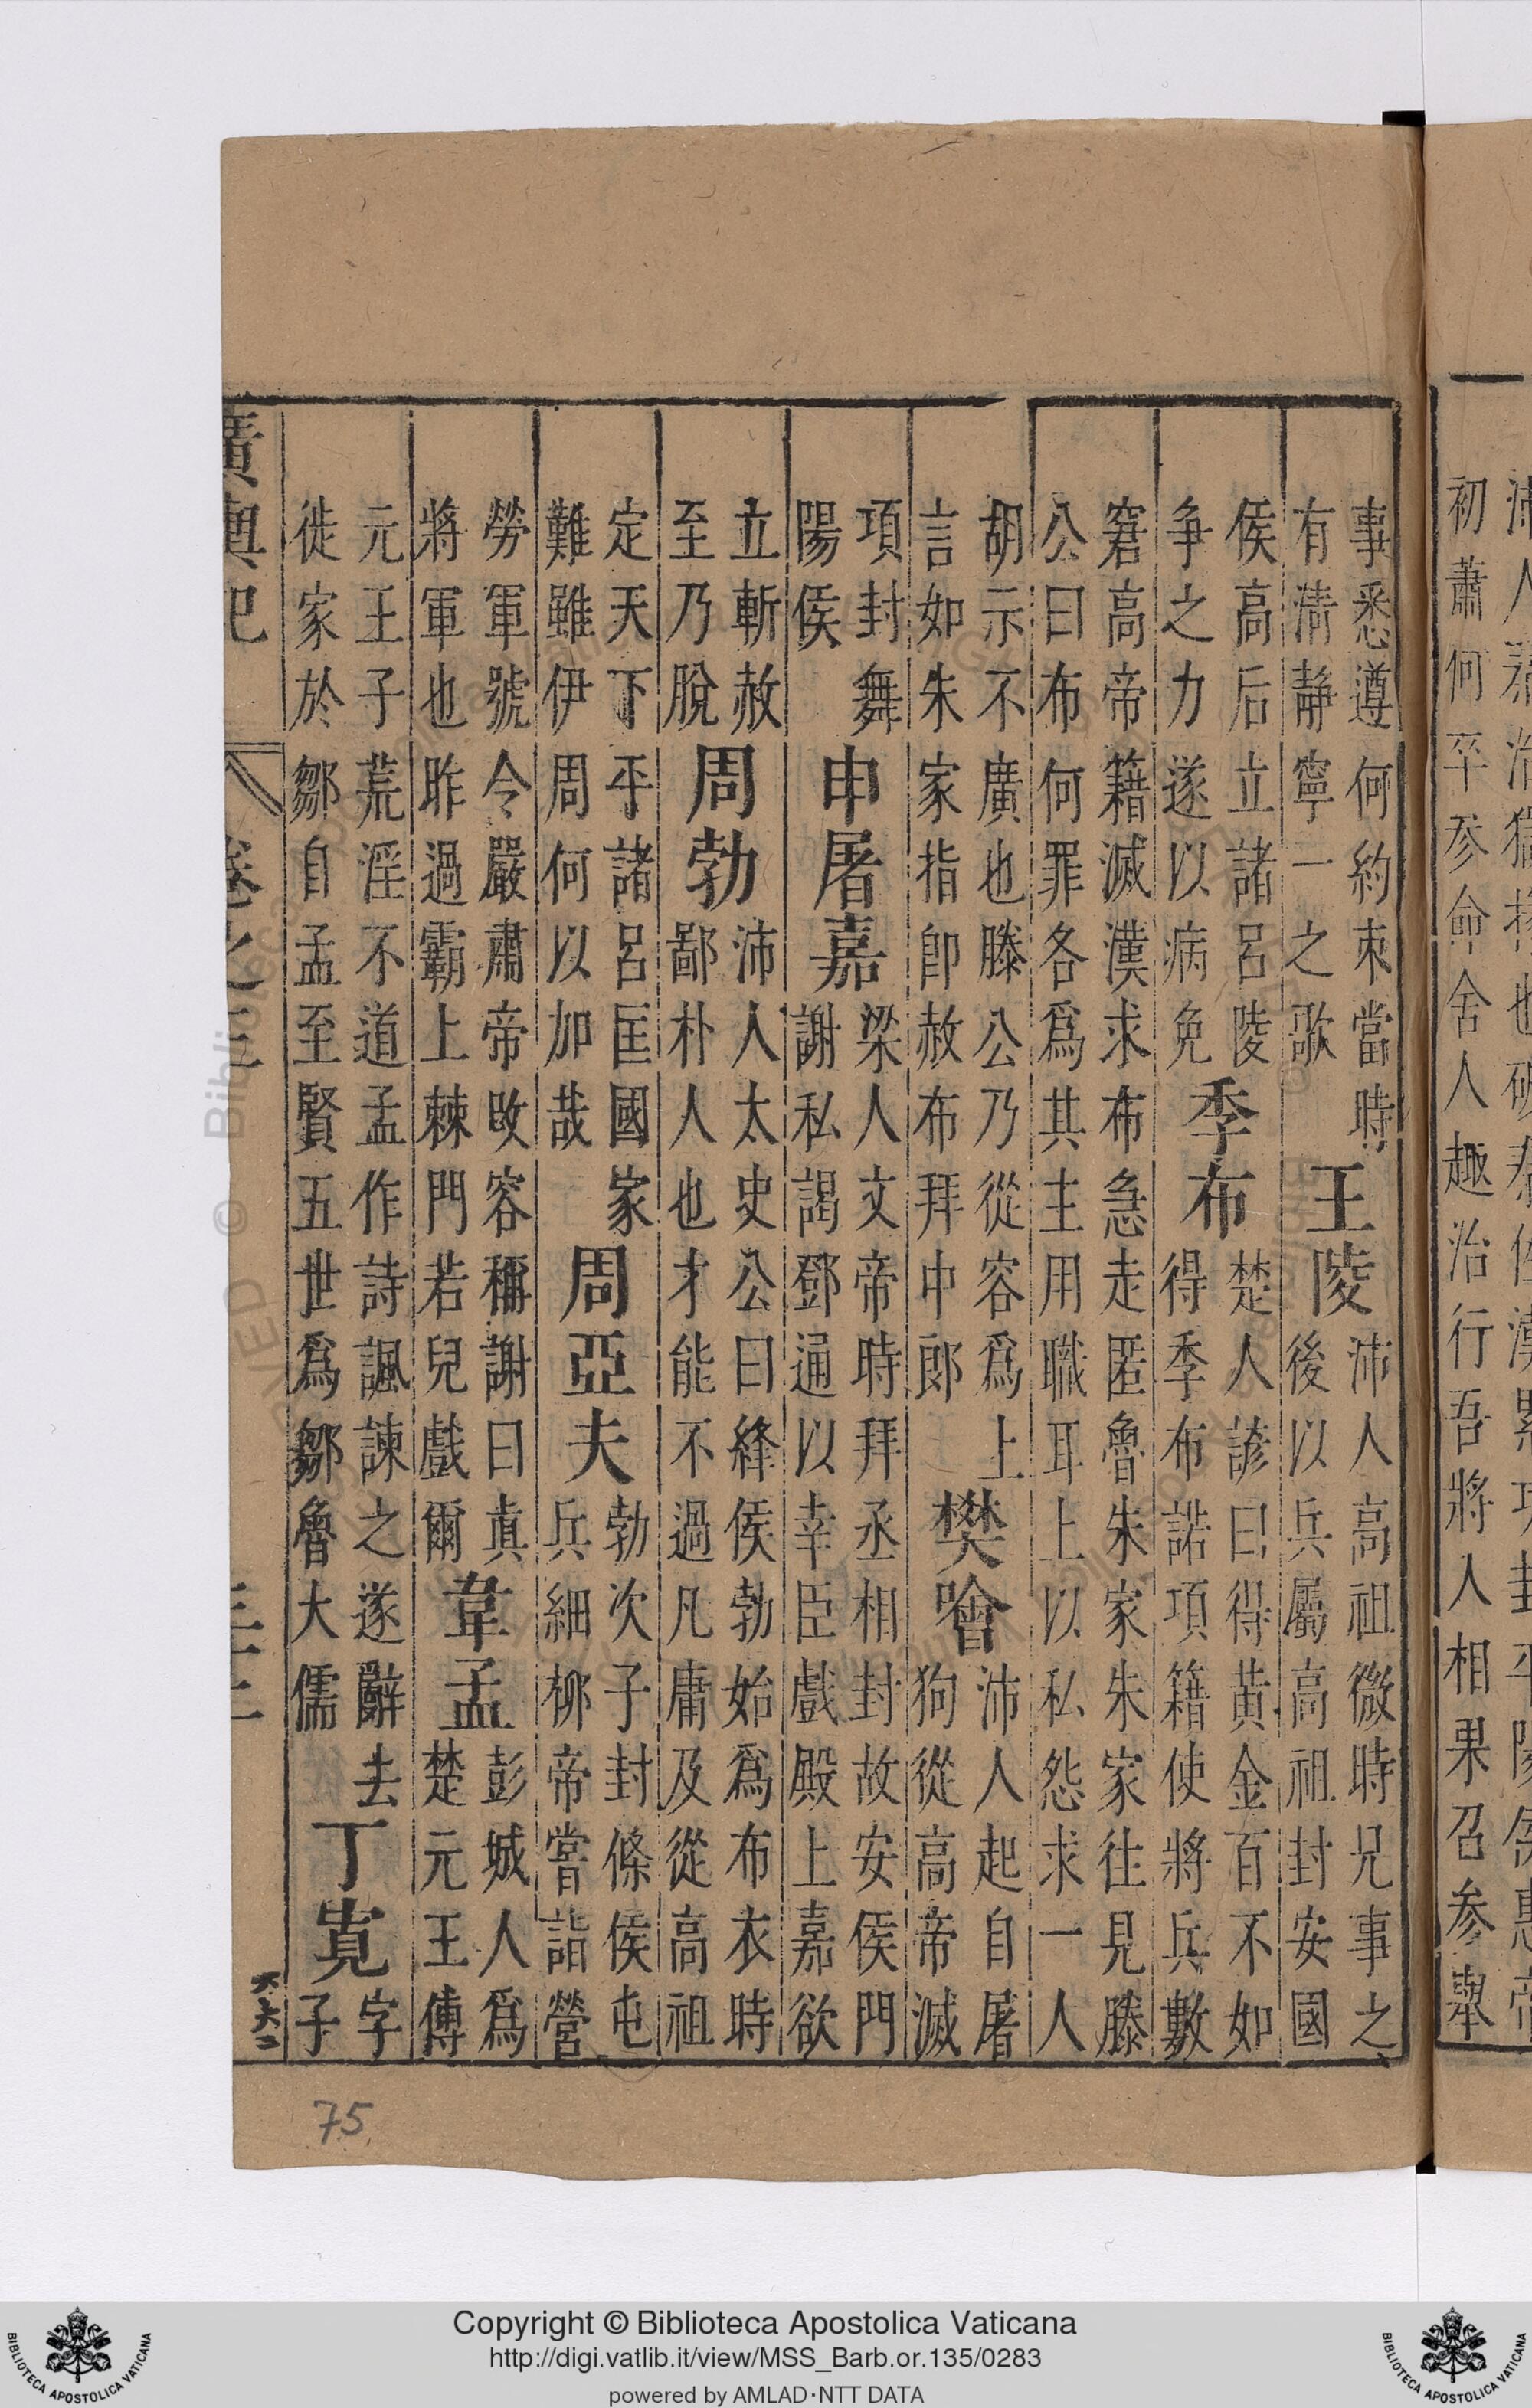 初蕭何卒参命舍人趣治行吾將人相果召参舉
事悉遵何約束當時
有清静寧一之歌
王陵
沛人高祖微時兄事之
後以兵屬高祖封安國
侯高后立諸呂陵
争之力遂以病免
季布
楚人諺曰得黄金百不如
得季布諾項籍使將兵數
窘高帝籍滅漢求布急走匿魯朱家朱家往見滕
公曰布何罪各爲其主用職耳上以私怨求一人
胡示不廣也滕公乃從容爲上
言如朱家指卽赦布拜中郎
樊噲
沛人起自屠
狗從高帝滅
項封舞
陽侯
申屠嘉
梁人文帝時拜丞相封故安侯門
謝私謁鄧通以幸臣戲殿上嘉欲
立斬赦
至乃脫
周勃
沛人太史公曰絳侯勃始爲布衣時
鄙朴人也才能不過凡庸及從高祖
定天下平諸呂匡國家
難雖伊周何以加哉
周亞夫
勃次子封條侯屯
兵細柳帝嘗詣營
勞軍號令嚴肅帝改容稱謝曰真
將軍也昨過霸上棘門若兒戲爾
韋孟
彭城人爲
楚元王傅
元王子荒淫不道孟作詩諷諫之遂辭去
徙家於鄒自孟至賢五世爲鄒魯大儒
丁寬
字
子
廣輿記
卷之三
75
Copyright © Biblioteca Apostolica Vaticana
http://digi.vatlib.it/view/MSS_Barb.or.135/0283
powered by AMLAD·NTT DATA
BIBLIOTECA APOSTOLICA VATICANA
BIBLIOTECA APOSTOLICA VATICANA